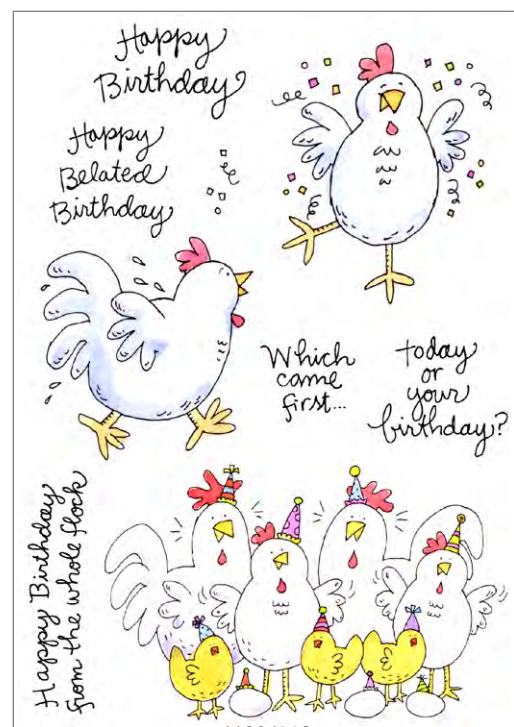 Happy
Birthday
Happy
Belated
Birthday
Which
came
first...
today
or
your
birthday?
Happy Birthday
from the whole flock